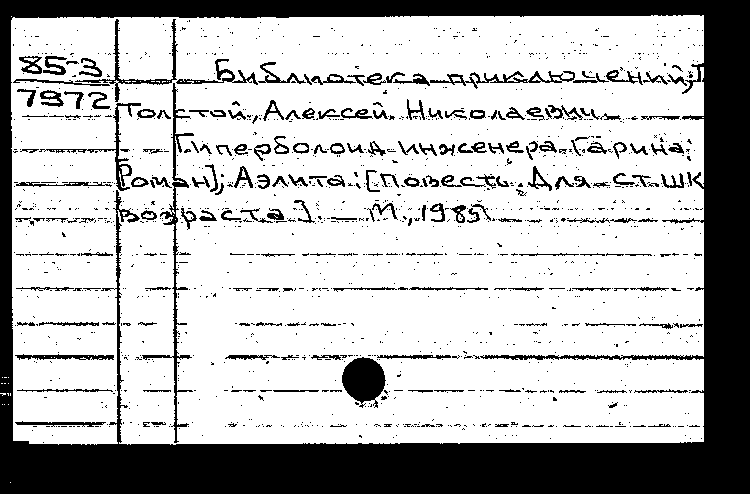 85-3 Библиотека приключений; Т
7972 Толстой, Алексей Николаевич.
Гиперболоид инженера Гарина:
[Роман]; Аэлита: [Повесть. Для ст. шк
возраста]. — М., 1985